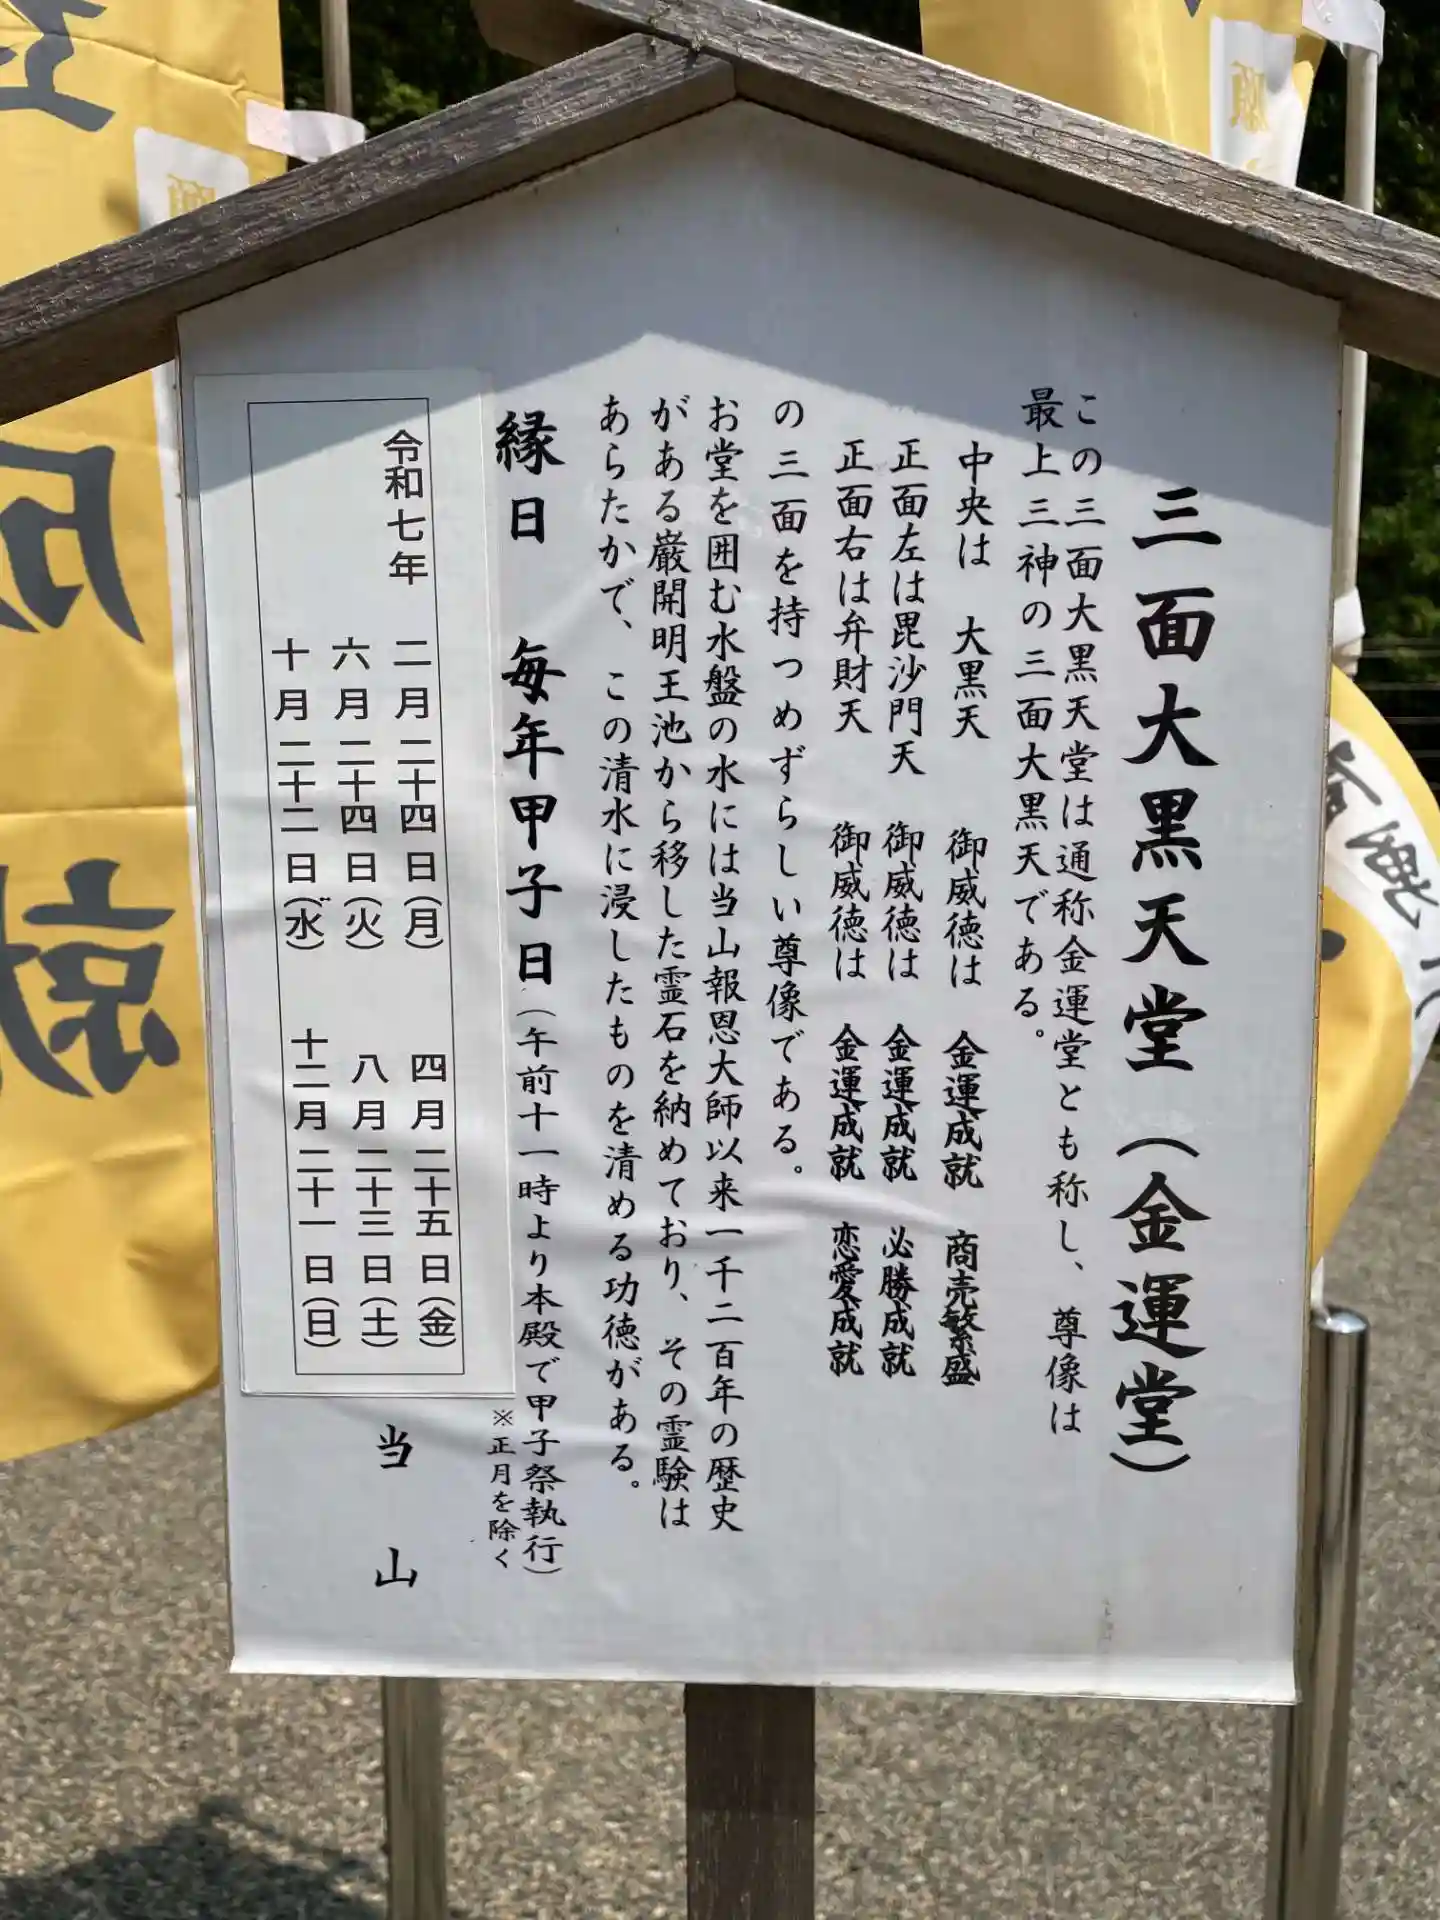 三面大黒天堂（金運堂）
この三面大黒天堂は通称金運堂とも称し、尊像は
最上三神の三面大黒天である。
中央は　大黒天　御威徳は　金運成就　商売繁盛
正面左は毘沙門天　御威徳は　金運成就　必勝成就
正面右は弁財天　御威徳は　金運成就　恋愛成就
の三面を持つめずらしい尊像である。
お堂を囲む水盤の水には当山報恩大師以来一千二百年の歴史
がある巌開明王池から移した霊石を納めており、その霊験は
あらたかで、この清水に浸したものを清める功徳がある。
縁日　毎年甲子日（午前十一時より本殿で甲子祭執行）
※正月を除く
令和七年
二月二十四日（月）　四月二十五日（金）
六月二十四日（火）　八月二十三日（土）
十月二十二日（水）　十二月二十一日（日）
当山
成
就